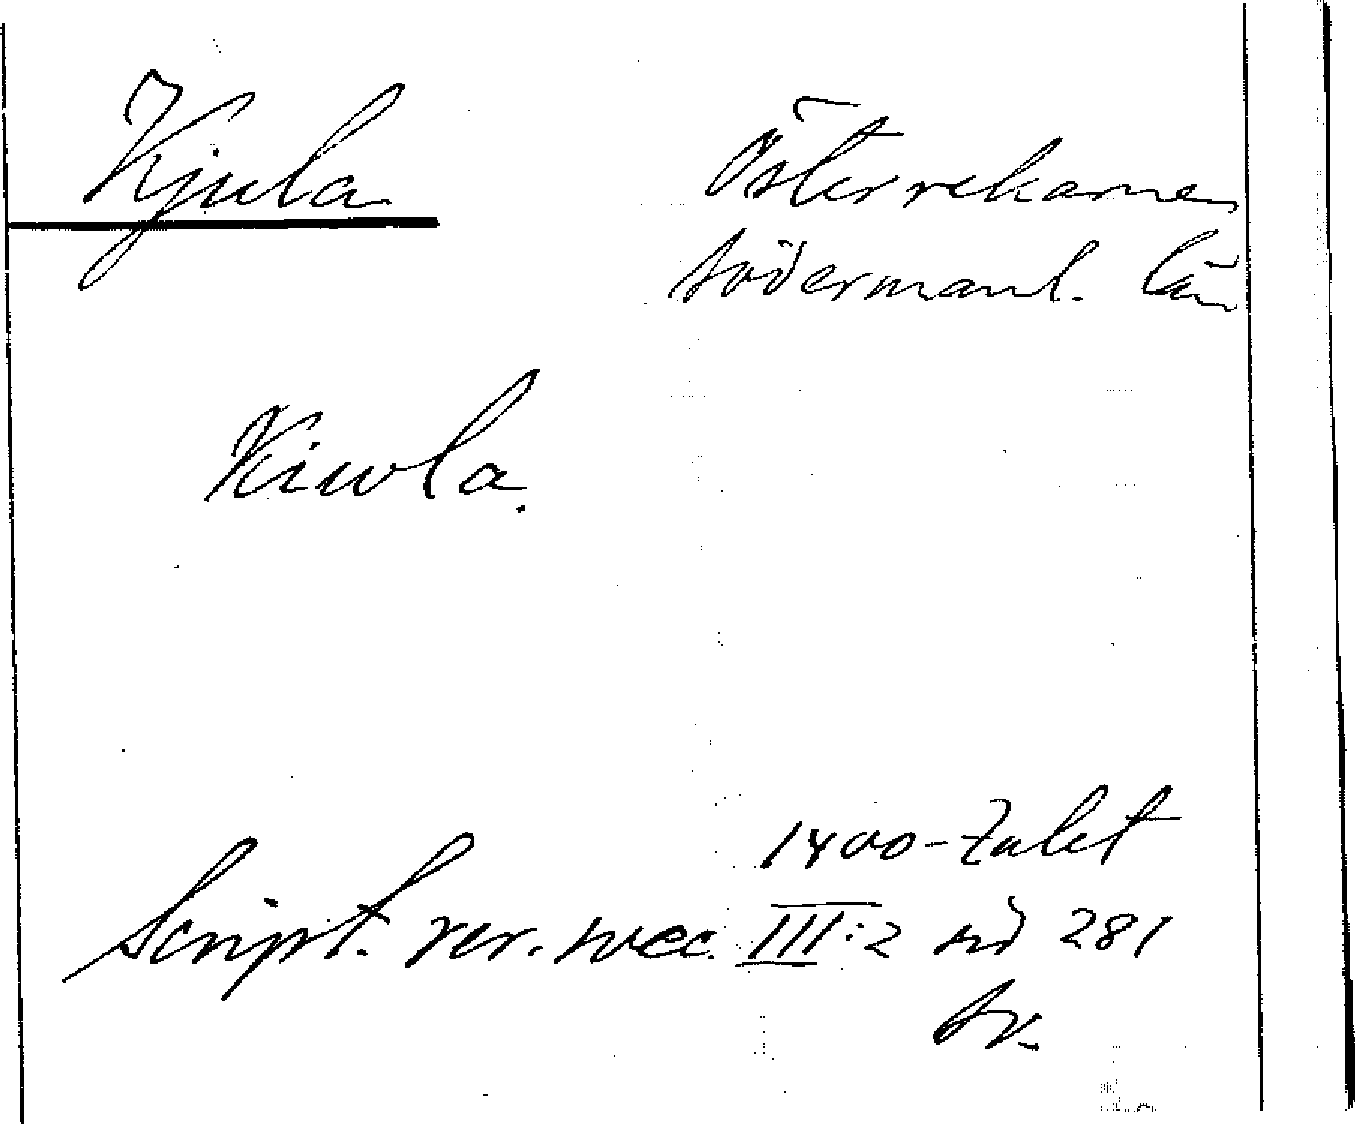 Kjula
Österrekarne
Södermanl. län
Kiwla.
1400-talet
Script. rer. svec. III:2 sid 281
Sv.